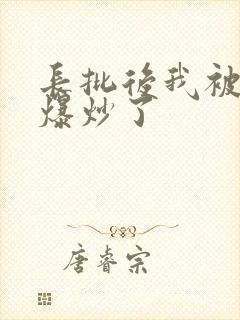 長批後我被
爆炒了
唐睿宗